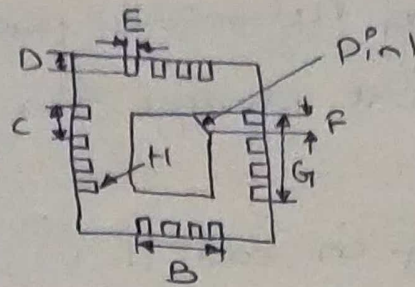 E
D
Pin1
C
F
H
G
B